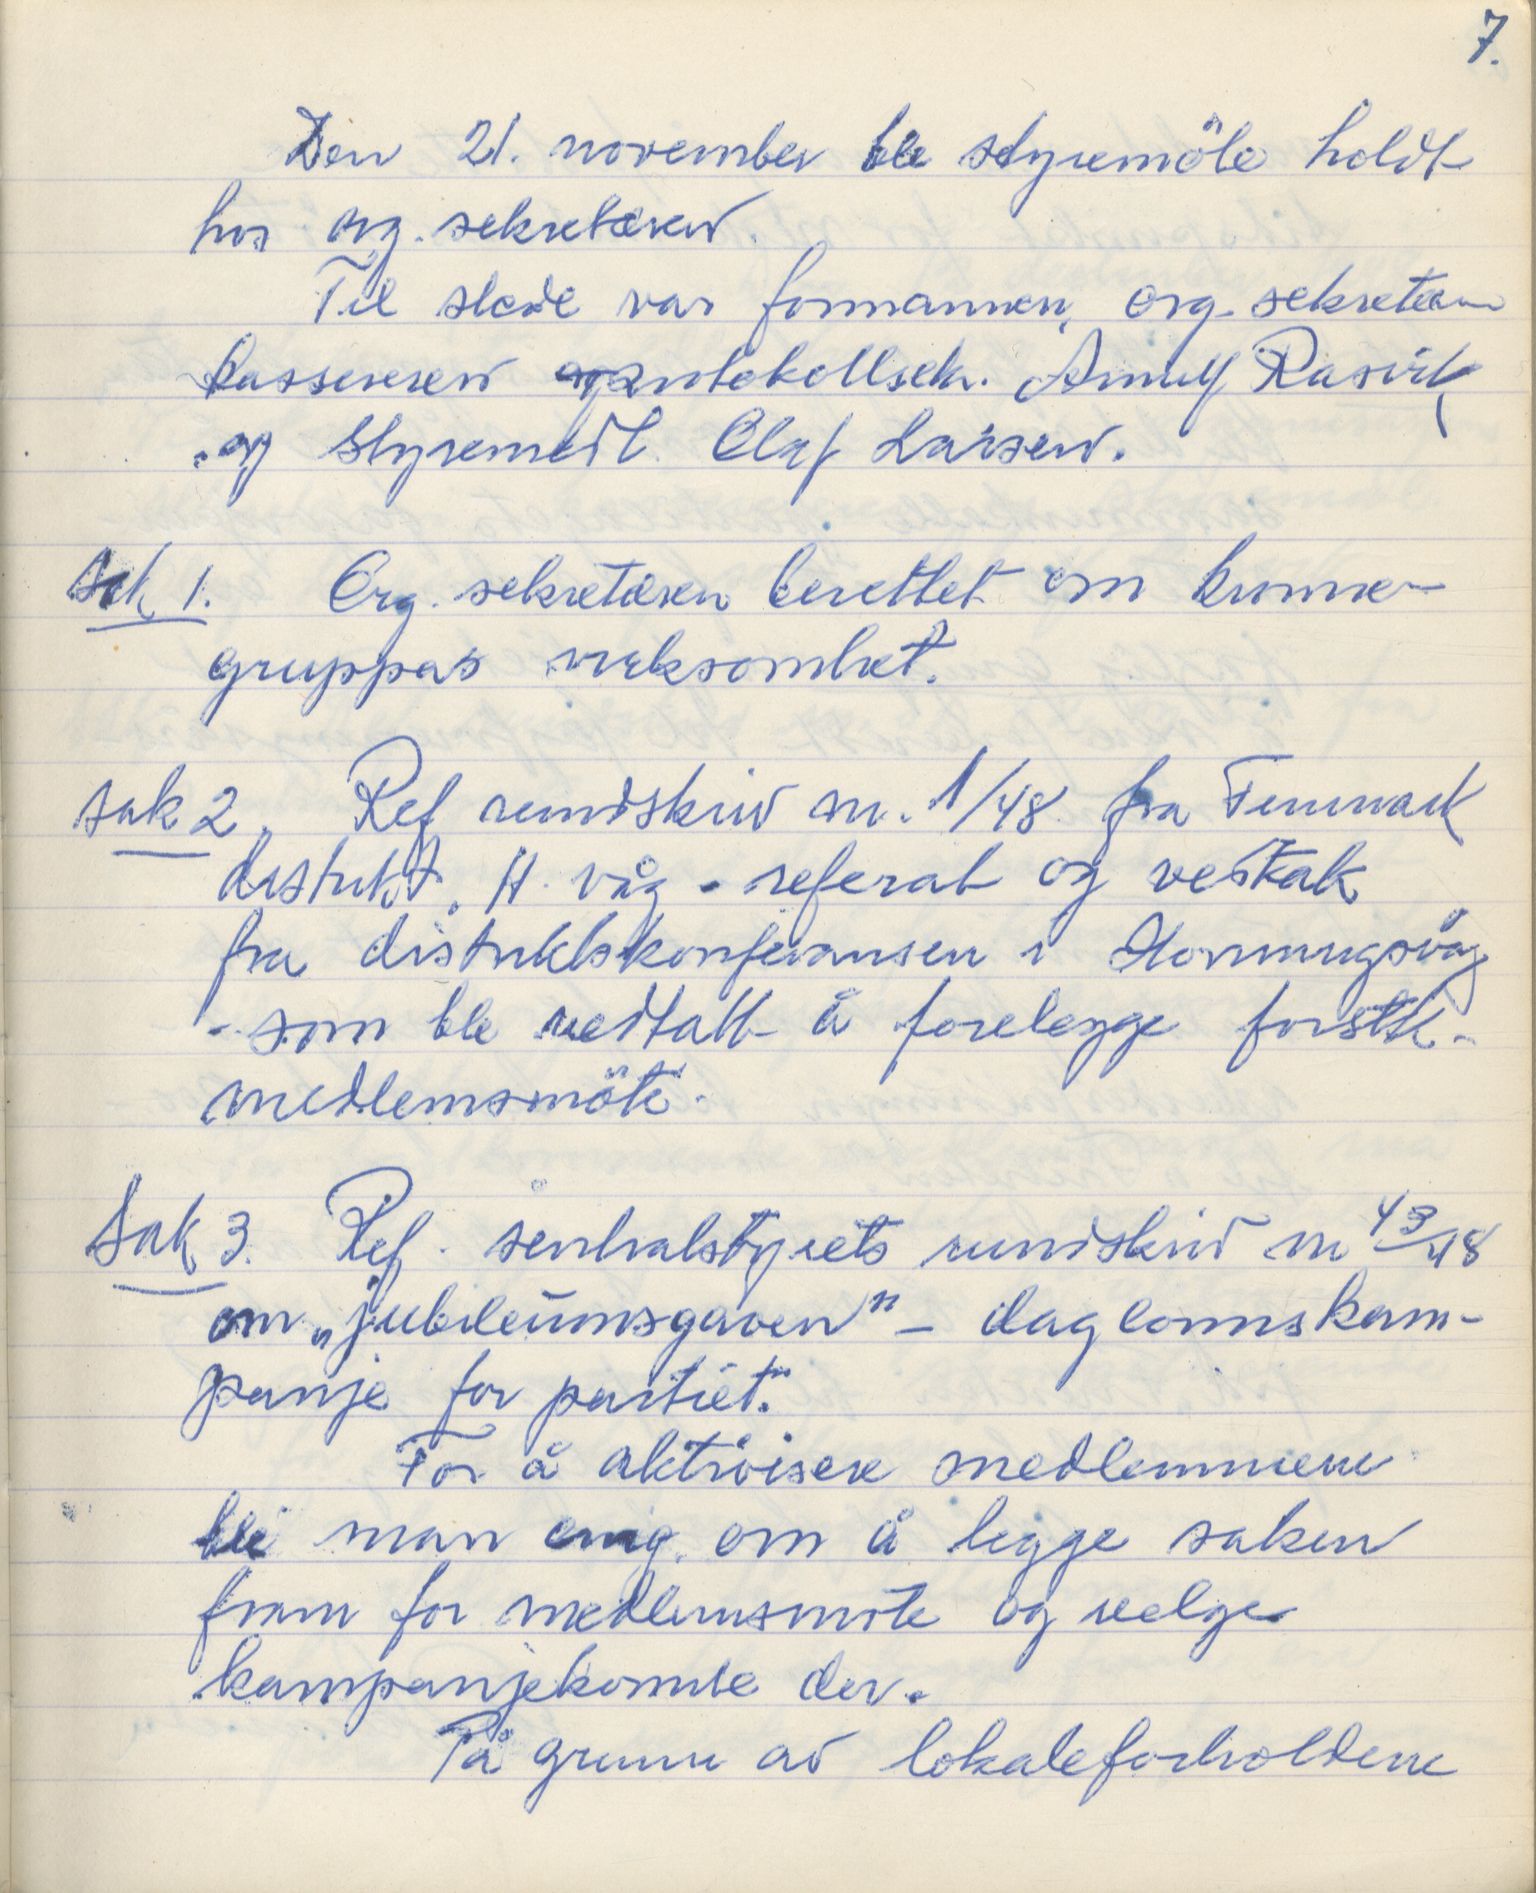 7.
Den 21. november ble styremöte holdt
hos org. sekretæren.
Til stede var formannen, org. sekretær
kassereren protokollsek. Arnulf Rasvik
og styremedl. Olaf Larsen.
Sak 1. Org. sekretæren berettet om kvinne-
gruppas virksomhet.
Sak 2. Ref rundskriv nr. 1/48 fra Finnmark
distrikt, H. våg - referat og vedtak
fra distriktskonferansen i Honningsvåg
- som ble vedtatt å forelegge førstk.
medlemsmöte.
Sak 3. Ref. sentralstyrets rundskriv nr 43/48
om „jubileumsgaven" – daglønnskam-
panje for partiet."
For å aktivisere medlemmene
ble man enig om å legge saken
fram for medlemsmøte og velge
kampanjekomite der.
På grunn av lokaleforholdene